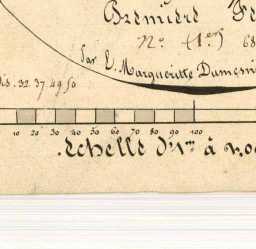 Première Fe
N.º (1er) 68
Par E. Margueritte Dumesni
is. 32. 37. 49. 50
10 20 30 40 50 60 70 80 90 100
Echelle d'1m à 100